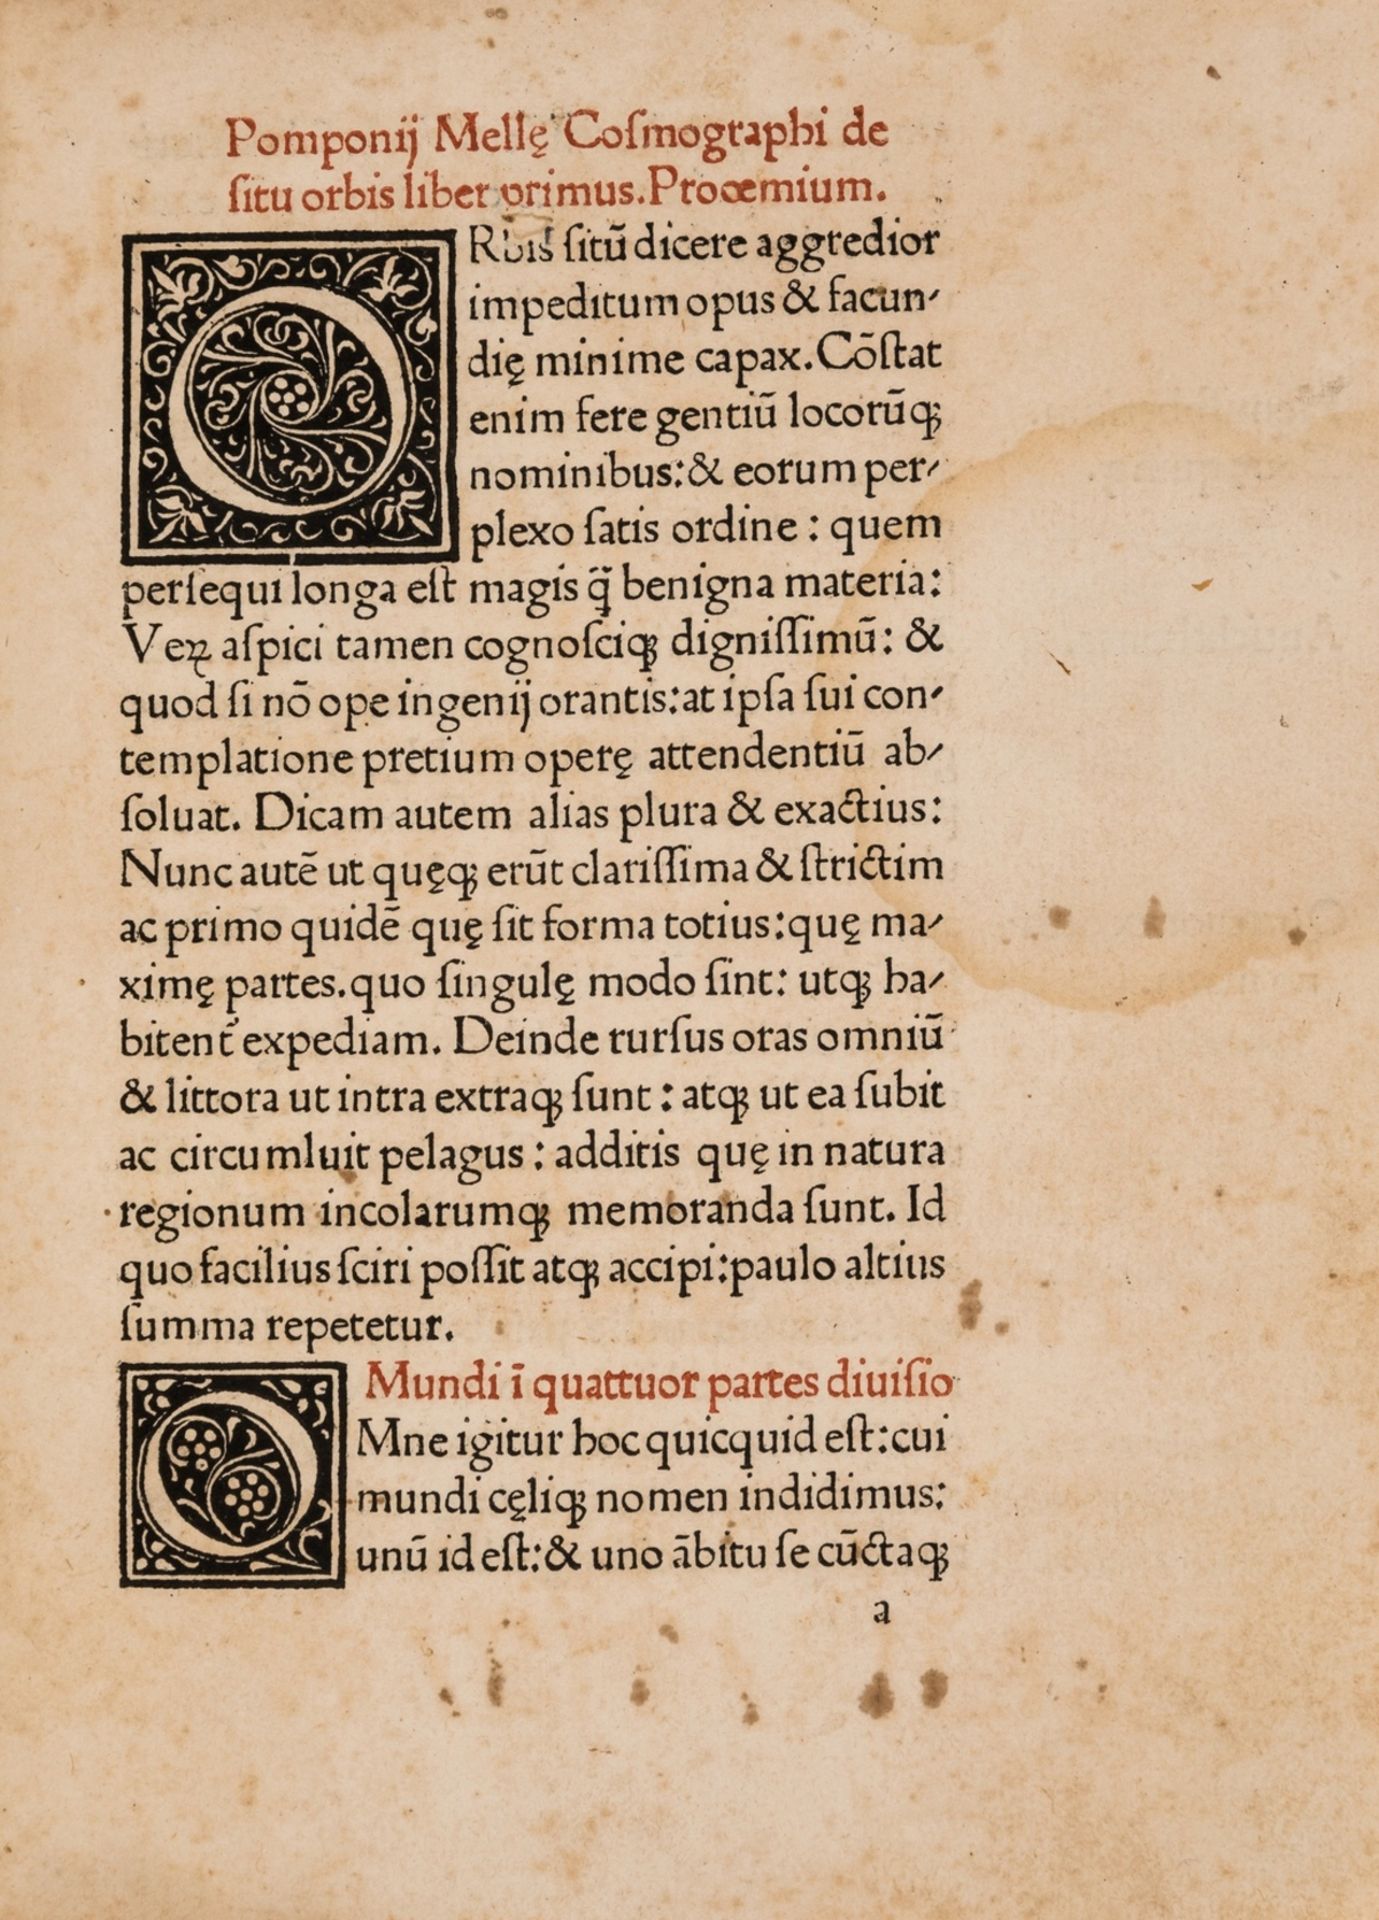 Pomponij Mellę Coſmographi de
ſitu orbis liber primus.Prooemium.
ORbis ſitū dicere aggredior
impeditum opus & facun-
dię minime capax.Cōſtat
enim fere gentiū locorūqꝫ
nominibus:& eorum per-
plexo ſatis ordine : quem
perſequi longa eſt magis q̄ benigna materia:
Veꝝ aſpici tamen cognoſciqꝫ digniſſimū: &
quod ſi nō ope ingenij orantis:at ipſa ſui con-
templatione pretium operę attendentiū ab-
ſoluat. Dicam autem alias plura & exactius:
Nunc autē ut quęqꝫ erūt clariſſima & ſtrictim
ac primo quidē quę ſit forma totius:quę ma-
ximę partes.quo ſingulę modo ſint: utqꝫ ha-
bitent᷑ expediam. Deinde rurſus oras omniū
& littora ut intra extraqꝫ ſunt : atqꝫ ut ea ſubit
ac circumluit pelagus : additis quę in natura
regionum incolarumqꝫ memoranda ſunt. Id
quo facilius ſciri poſſit atqꝫ accipi:paulo altius
ſumma repetetur.
Mundi ī quattuor partes diuiſio
OMne igitur hoc quicquid eſt:cui
mundi cęliqꝫ nomen indidimus:
unū id eſt:& uno ābitu ſe cūctaqꝫ
a